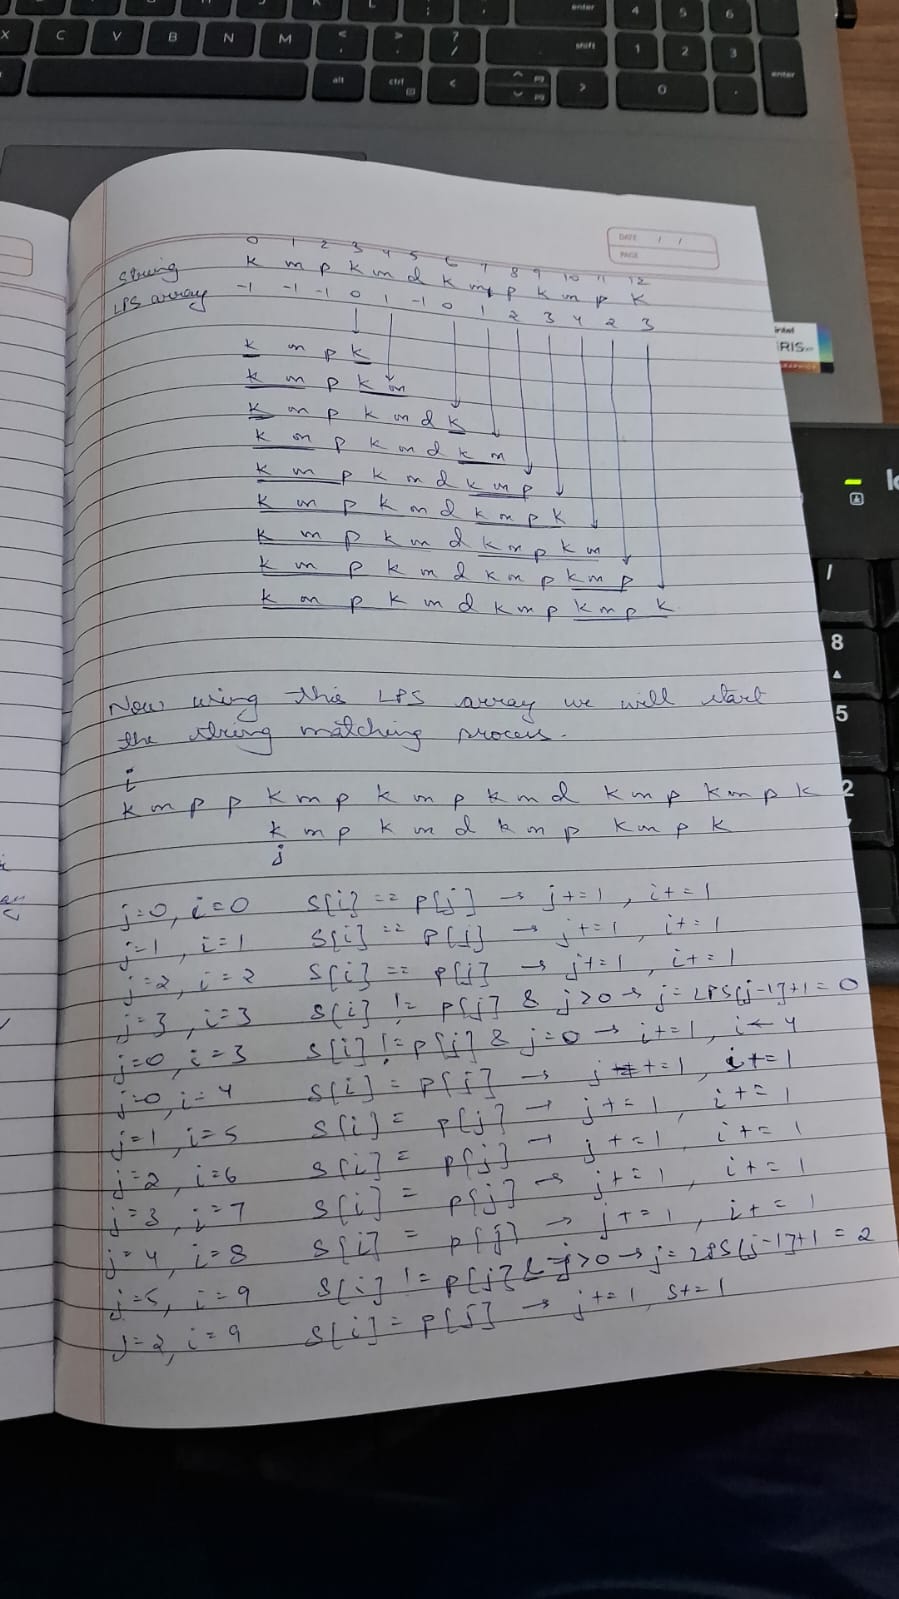 X C V B N M < , > . ? / enter 4 5 6
shift 1 2 3
alt ctrl < > 0 . enter
DATE / /
PAGE
0 1 2 3 4 5 6 7 8 9 10 11 12
string k m p k m d k m p k m p k
LPS array -1 -1 -1 0 1 -1 0 1 2 3 4 2 3
k m p k
k m p k m
k m p k m d k
k m p k m d k m
k m p k m d k m p
k m p k m d k m p k
k m p k m d k m p k m
k m p k m d k m p k m p
k m p k m d k m p k m p k
Now using this LPS array we will start
the string matching process.
i
k m p p k m p k m p k m d k m p k m p k
k m p k m d k m p k m p k
j
j=0, i=0 S[i] == P[j] → j+=1, i+=1
j=1, i=1 S[i] == P[j] → j+=1, i+=1
j=2, i=2 S[i] == P[j] → j+=1, i+=1
j=3, i=3 S[i] != P[j] & j>0 → j= LPS[j-1]+1 = 0
j=0, i=3 S[i] != P[j] & j=0 → i+=1, i← 4
j=0, i=4 S[i] = P[j] → j+=1, i+=1
j=1, i=5 S[i] = P[j] → j+=1, i+=1
j=2, i=6 S[i] = P[j] → j+=1, i+=1
j=3, i=7 S[i] = P[j] → j+=1, i+=1
j=4, i=8 S[i] = P[j] → j+=1, i+=1
j=5, i=9 S[i] != P[j] & j>0 → j= LPS[j-1]+1 = 2
j=2, i=9 S[i] = P[j] → j+=1, s+=1
intel
IRIS
GRAPHICS
/
8
5
2